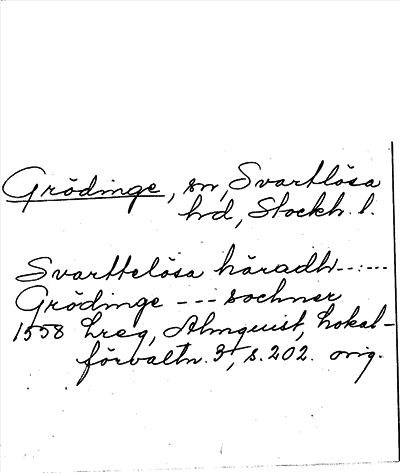 Grödinge, sn, Svartlösa
hd, Stockh. l.
Svarttelösa häradh------
Grödinge --- sochner
1558 Lreg, Almquist, Lokal-
förvaltn. 3, s. 202. orig.